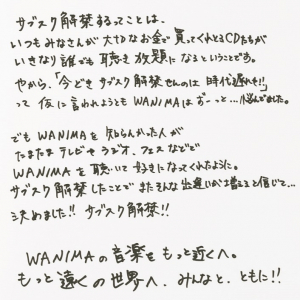 サブスク解禁するってことは、
いつもみなさんが大切なお金で買ってくれてるCDたちが
いきなり誰でも聴き放題になるということです。
やから、「今どきサブスク解禁せんのは時代遅れや!!」
って仮に言われようともWANIMAはずーっと…悩んでました。
でもWANIMAを知らんかった人が
たまたまテレビやラジオ、フェスなどで
WANIMAを聴いて好きになってくれたように。
サブスク解禁したことでまたそんな出逢いが増えると信じて…
決めました!!サブスク解禁!!
WANIMAの音楽をもっと近くへ。
もっと遠くの世界へ.みんなと.ともに!!